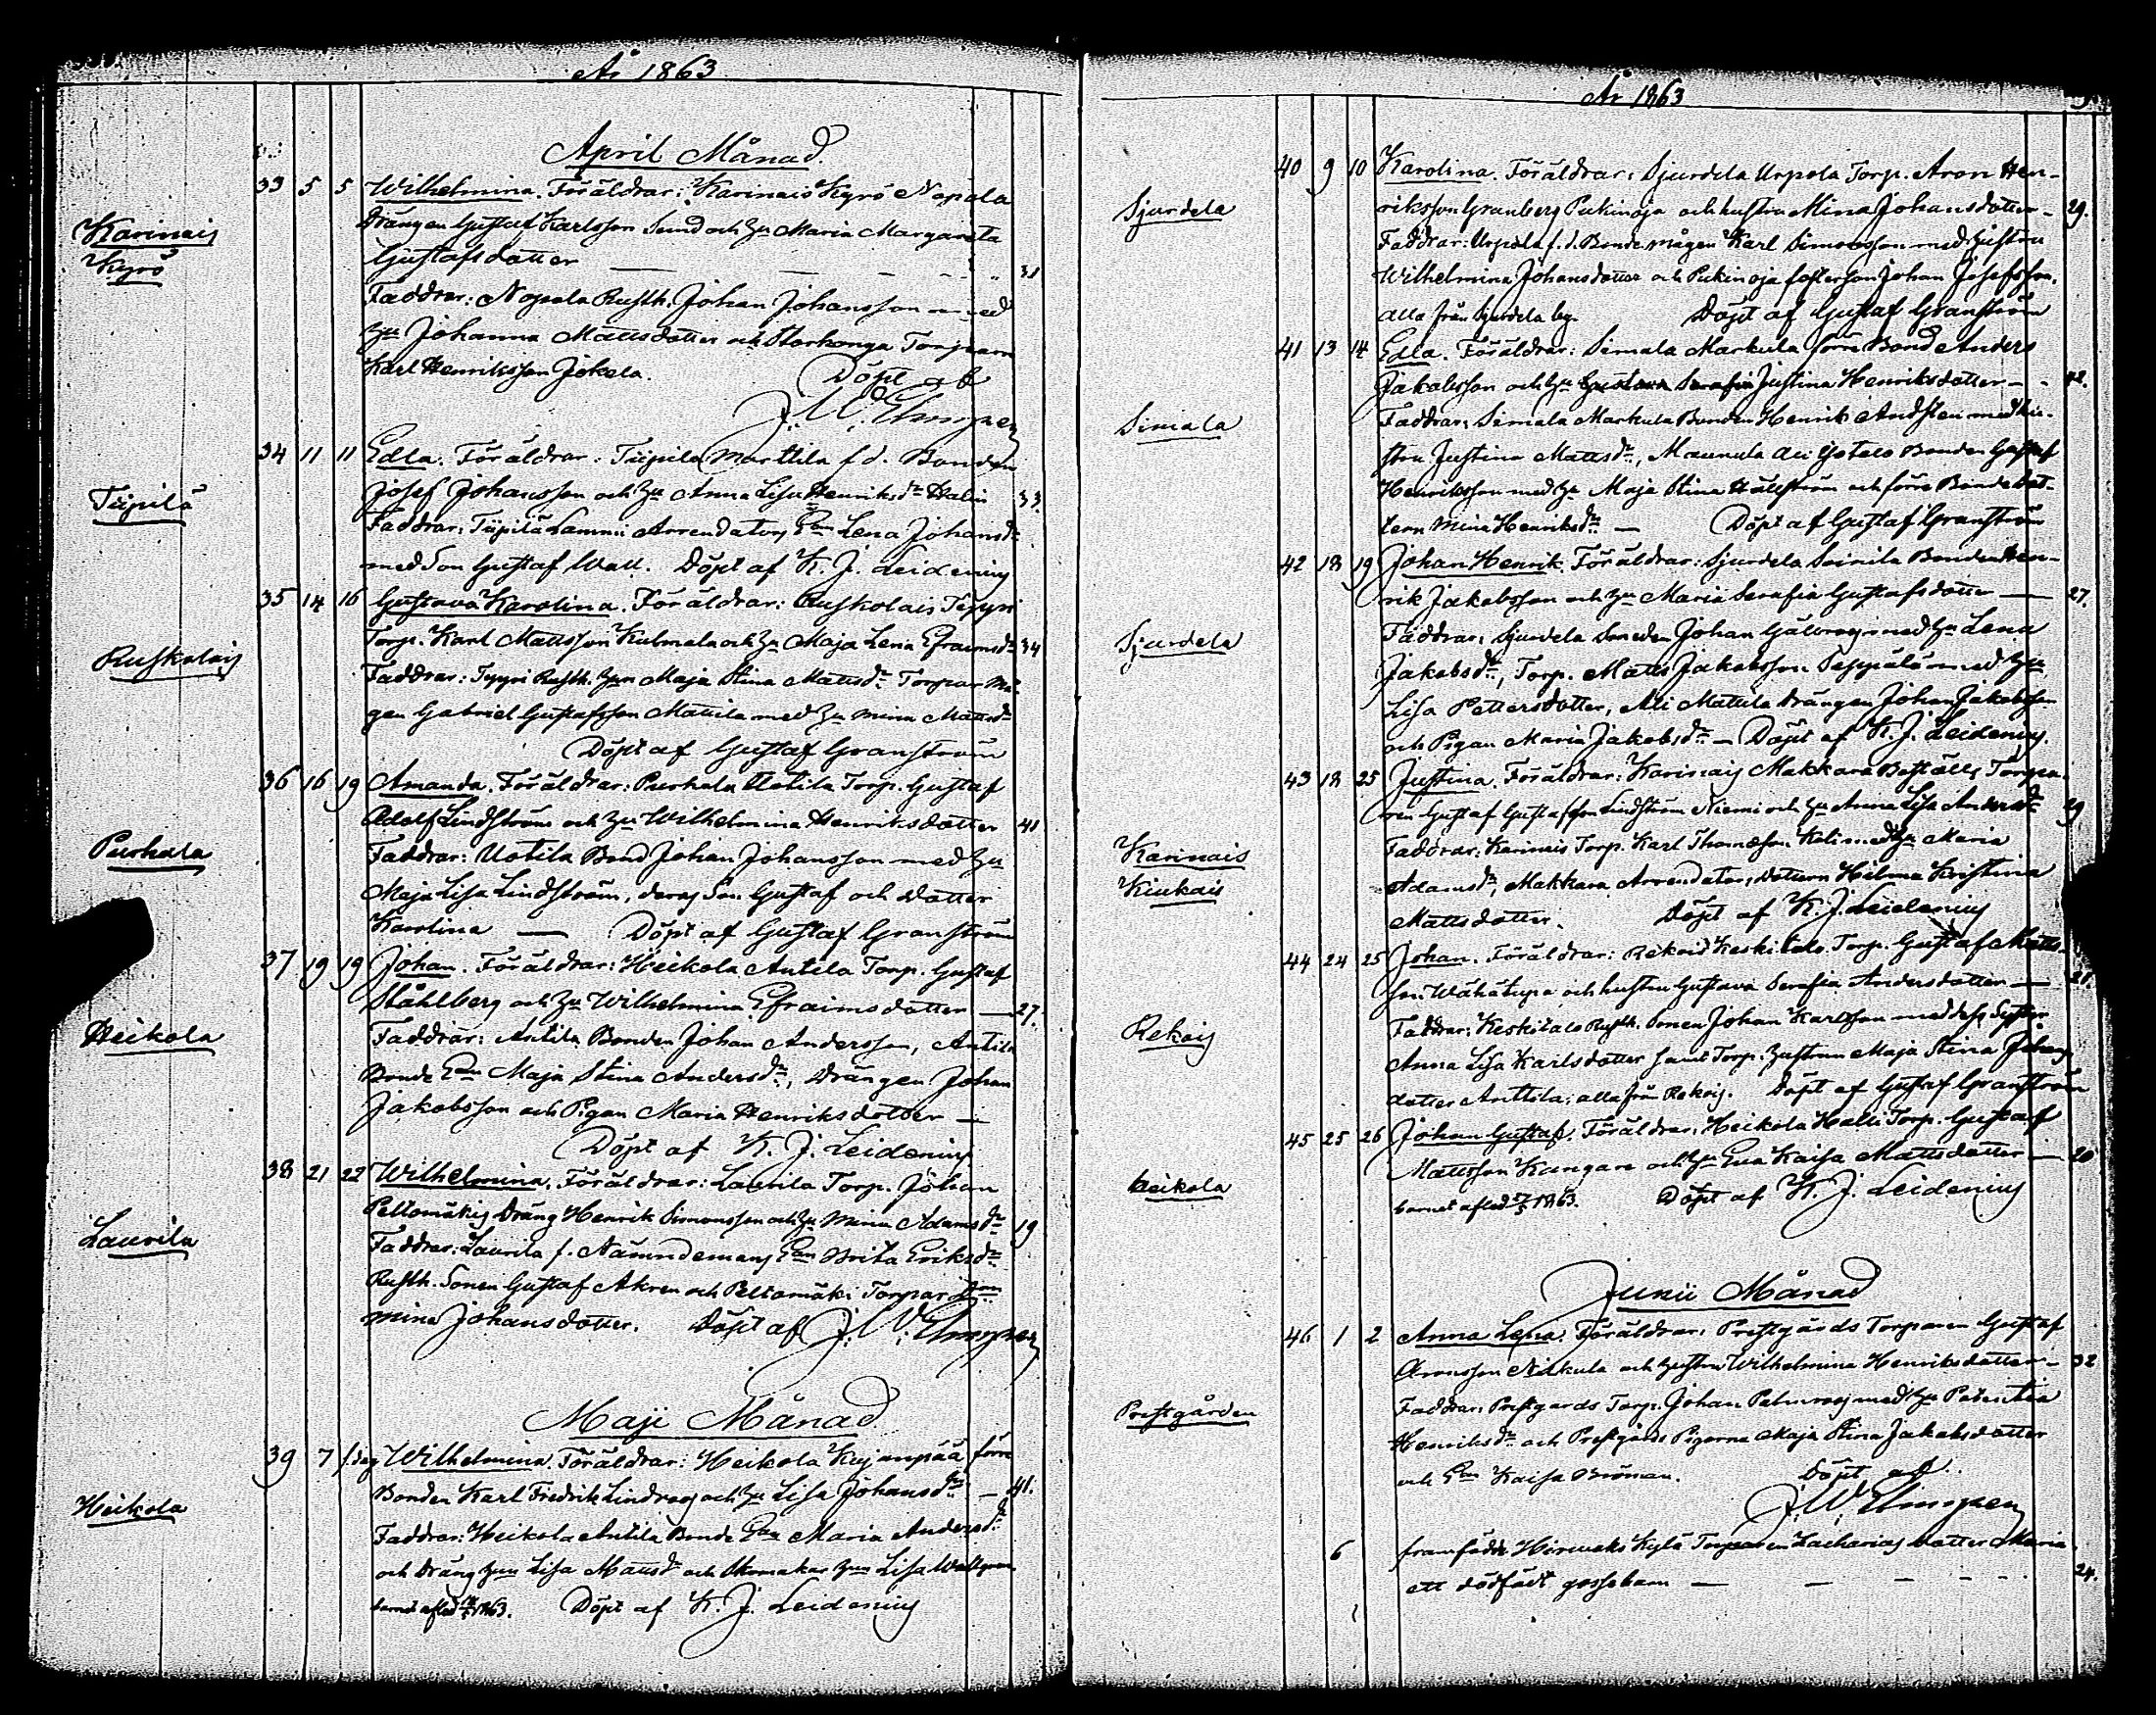 År 1863
April Månad.
Karinais
Kyrö
33 5 5 Wilhelmina. Föräldrar: Karinais Kyrö Nopala
Drängen Gustaf Karlsson Sund och Hu Maria Margareta
Gustafsdotter — 31
Faddrar: Nopala Rusth. Johan Johansson med
Hu Johanna Mattsdotter och Torparn
Karl Henriksson Jokela. Döpt af
J. W. Elmgren
Tiipilä
34 11 11 Edla. Föräldrar: Tiipilä Marttila f d. Bonden
Josef Johansson och Hu Anna Lisa Henriksdr Halin 33.
Faddrar: Tiipilä Lammi Arrendators Enkan Lena Johansdr
med Son Gustaf Wall. Döpt af K. J. Leidenius
Ruskolais
35 14 16 Gustava Karolina. Föräldrar: Ruskolais Tyyri
Torp. Karl Mattsson Kulmala och Hu Maja Lena Efraimsdr 34
Faddrar: Tyyri Rusth. Hun Maja Stina Mattsdr Torpar Må-
gen Gabriel Gustafsson Mattila med Hu Mina Mattsdr
Döpt af Gustaf Granström
Purhala
36 16 19 Amanda. Föräldrar: Purhala Uotila Torp. Gustaf
Adolf Lindström och Hu Wilhelmina Henriksdotter 41
Faddrar: Uotila Bond Johan Johansson med Hu
Maja Lisa Lindström, deras Son Gustaf och Dotter
Karolina — Döpt af Gustaf Granström
Heikola
37 19 19 Johan. Föräldrar: Heikola Antila Torp. Gustaf
Ståhlberg och Hu Wilhelmina Efraimsdotter — 27.
Faddrar: Antila Bonden Johan Andersson, Antila
Bonde Enkan Maja Stina Andersdr, Drängen Johan
Jakobsson och Pigan Maria Henriksdotter —
Döpt af K. J. Leidenius
Laurila
38 21 22 Wilhelmina. Föräldrar: Laurila Torp. Johan
Peltomäkis Dräng Henrik Simonsson och Hu Mina Adamsdr 19
Faddrar: Laurila f. Nämndemans Enkan Brita Eriksdr
Rusth. Sonen Gustaf Akren och Peltomäki Torpar
Mina Johansdotter. Döpt af J. W. Elmgren
Maji Månad
Heikola
39 7 s.dag Wilhelmina. Föräldrar: Heikola Kujanpää förre
Bonden Karl Fredrik Lindroos och Hu Lisa Johansdr — 41.
Faddrar: Heikola Antila Bonde Enkan Maria Andersdr
och Dräng Hun Lisa Mattsdr och Skomakar Hun Lisa Wallgren
barnet afled 1863. Döpt af K. J. Leidenius
År 1863
Sjurdela
40 9 10 Karolina. Föräldrar: Sjurdela Urpola Torp. Aron Hen-
riksson Granberg Pukinoja och hustru Mina Johansdotter — 29.
Faddrar: Urpola f. d. Bonde mågen Karl Simonsson med hustru
Wilhelmina Johansdotter och Pukinoja fosterson Johan Josefsson,
alla från Sjurdela by. Döpt af Gustaf Granström
Simala
41 13 14 Edla. Föräldrar: Simala Markula förre Bond Anders
Jakobsson och Hu Justina Henriksdotter — 42.
Faddrar: Simala Markula Bonden Henrik Andsten med hu-
stru Justina Mattsdr, Maunula Ali Yotalo Bonden Gustaf
Henriksson med Hu Maja Stina Hällström och förre Bonde Dot-
tern Mina Henriksdr — Döpt af Gustaf Granström
Sjurdela
42 18 19 Johan Henrik. Föräldrar: Sjurdela Soinila Bonden Hen-
rik Jakobsson och Hu Maria Serafia Gustafsdotter — 27.
Faddrar: Sjurdela Smeden Johan Gällroos med Hu Lena
Jakobsdr, Torp. Matts Jakobsson Seppälä med Hu
Lisa Pettersdotter, Ali Mattila Drängen Johan Jakobsson
och Pigan Maria Jakobsdr — Döpt af K. J. Leidenius.
Karinais
Kiukais
43 18 25 Justina. Föräldrar: Karinais Makkara Boställs Torpa-
ren Gustaf Gustafsson Lindström Niemi och Hu Anna Lisa Andersdr 29
Faddrar: Karinais Torp. Karl Thomasson med Hu Maria
Adamsdr, Makkara Arrendators Dottern Hilma Kristina
Mattsdotter. Döpt af K. J. Leidenius
Rekois
44 24 25 Johan. Föräldrar: Rekois Keskitalo Torp. Gustaf Matts-
son Wähätupa och hustru Gustava Serafia Andersdotter — 21.
Faddrar: Keskitalo Rusth. Sonen Johan Karlsson med dess Syster
Anna Lisa Karlsdotter samt Torp. Hustrun Maja Stina Johans-
dotter Anttila; alla från Rekois. Döpt af Gustaf Granström
Heikola
45 25 26 Johan Gustaf. Föräldrar: Heikola Halli Torp. Gustaf
Mattsson Kangare och Hu Eva Kaisa Mattsdotter — 20
barnet afled 1863. Döpt af K. J. Leidenius
Junii Månad
Prestgården
46 1 2 Anna Lena. Föräldrar: Prestgårds Torparen Gustaf
Aronsson Nikkula och hustru Wilhelmina Henriksdotter — 32
Faddrar: Prestgårds Torp. Johan Palmroos med Hu
Henriksdr och Prestgårds Pigorna Maja Stina Jakobsdotter
och Eva Kaisa Broman. Döpt af
J. W. Elmgren
6 framfödde Hirwaks Kylä Torparen Zacharias Dotter Maria
ett dödfödt gossebarn — 24.